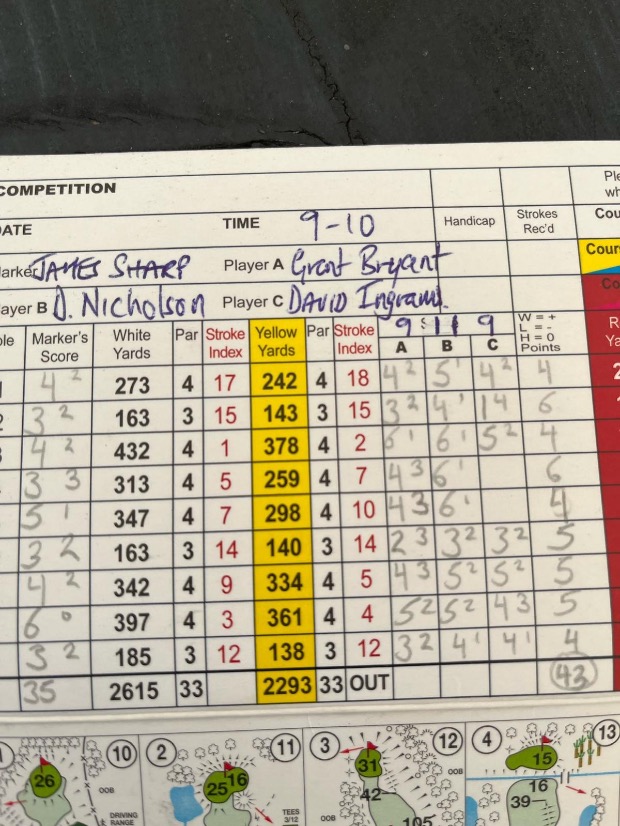 COMPETITION
DATE TIME 9-10 Handicap Strokes Rec'd
Marker JAMES SHARP Player A Grant Bryant
Player B D. Nicholson Player C DAVID Ingram.
9 : 11 9
Marker's Score White Yards Par Stroke Index Yellow Yards Par Stroke Index A B C W = + L = - H = 0 Points
4 2 273 4 17 242 4 18 4 2 5 1 4 2 4
3 2 163 3 15 143 3 15 3 2 4 1 1 4 6
4 2 432 4 1 378 4 2 6 1 6 1 5 2 4
3 3 313 4 5 259 4 7 4 3 6 1 6
5 1 347 4 7 298 4 10 4 3 6 1 4
3 2 163 3 14 140 3 14 2 3 3 2 3 2 5
4 2 342 4 9 334 4 5 4 3 5 2 5 2 5
6 0 397 4 3 361 4 4 5 2 5 2 4 3 5
3 2 185 3 12 138 3 12 3 2 4 1 4 1 4
35 2615 33 2293 33 OUT 43
10 2 11 3 12 4 13
26 25 16 31 42 105 15 16 39
OOB
DRIVING RANGE
TEES 3/12
OOB
OOB